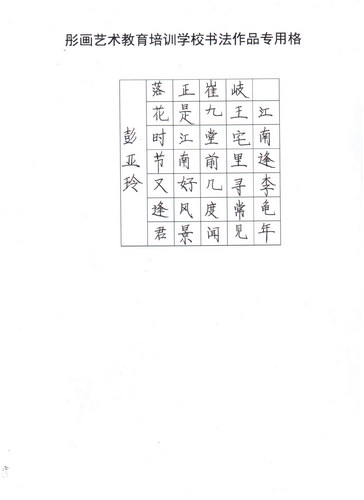 彤画艺术教育培训学校书法作品专用格
江南逢李龟年
岐王宅里寻常见
崔九堂前几度闻
正是江南好风景
落花时节又逢君
彭亚玲